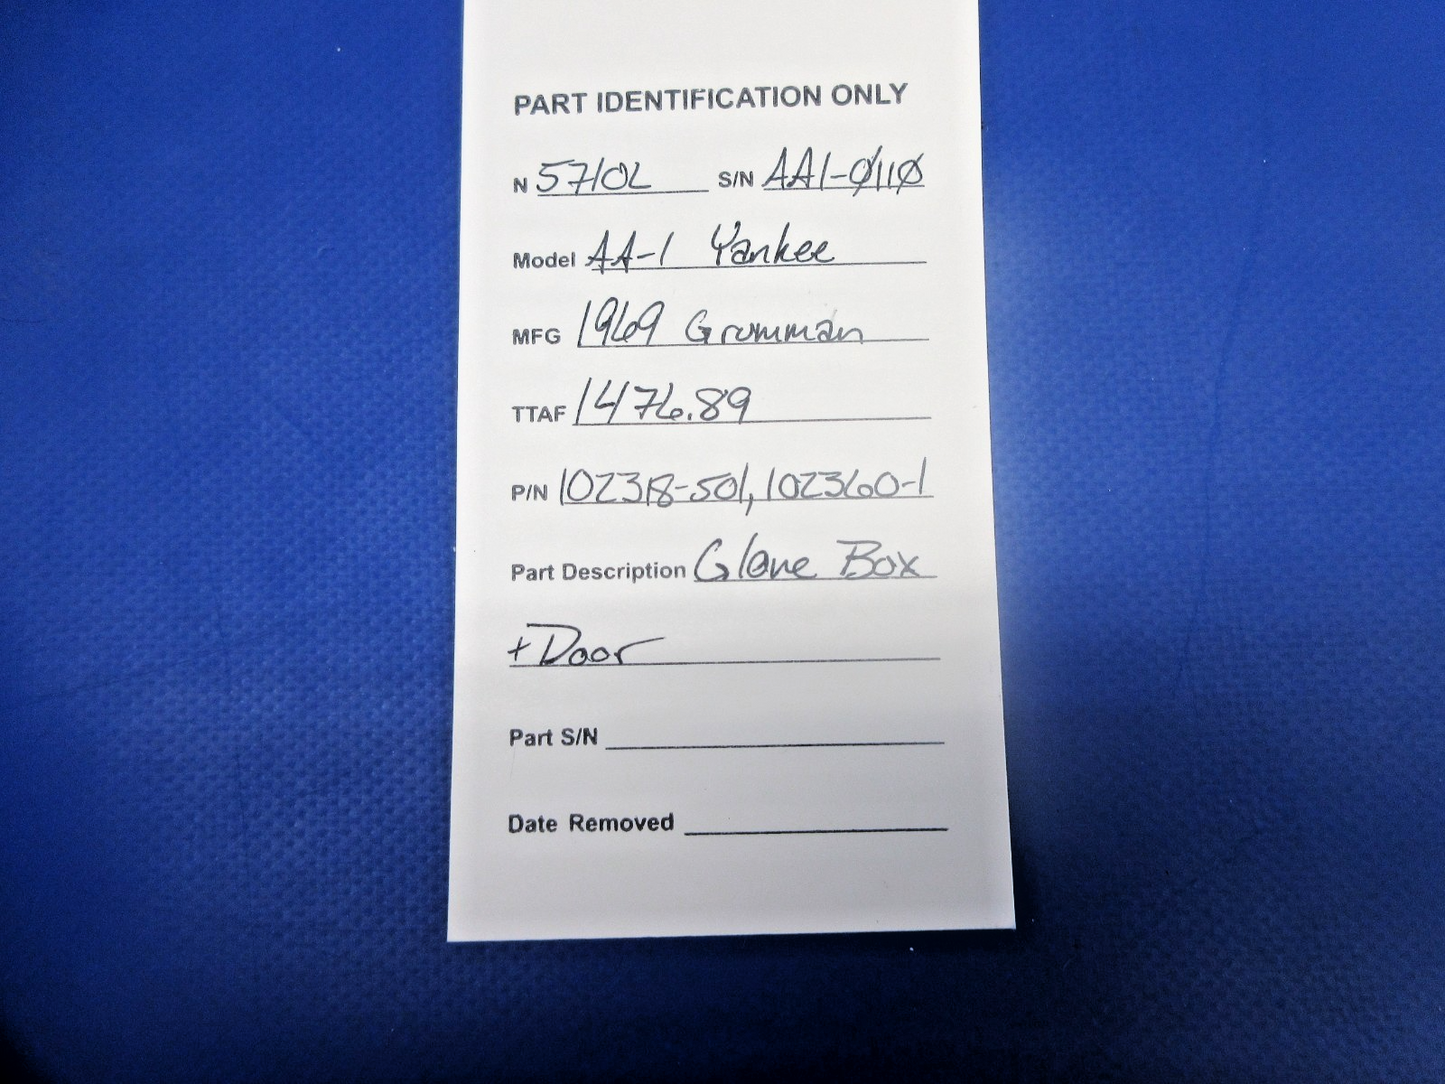 PART IDENTIFICATION ONLY
N 5710L S/N AA1-Ø11Ø
Model AA-1 Yankee
MFG 1969 Grumman
TTAF 1476.89
P/N 102318-501, 102360-1
Part Description Glove Box
+ Door
Part S/N
Date Removed